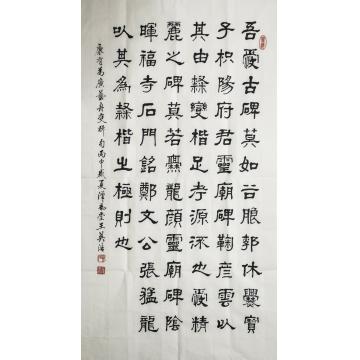 吾愛古碑莫如谷朗郭休爨寶
子枳陽府君靈廟碑鞠彥雲以
其由隸變楷足考源流也愛精
麗之碑莫若爨龍顏靈廟碑陰
暉福寺石門銘鄭文公張猛龍
以其為隸楷之極則也
康有為廣藝舟雙楫句丙申歲夏